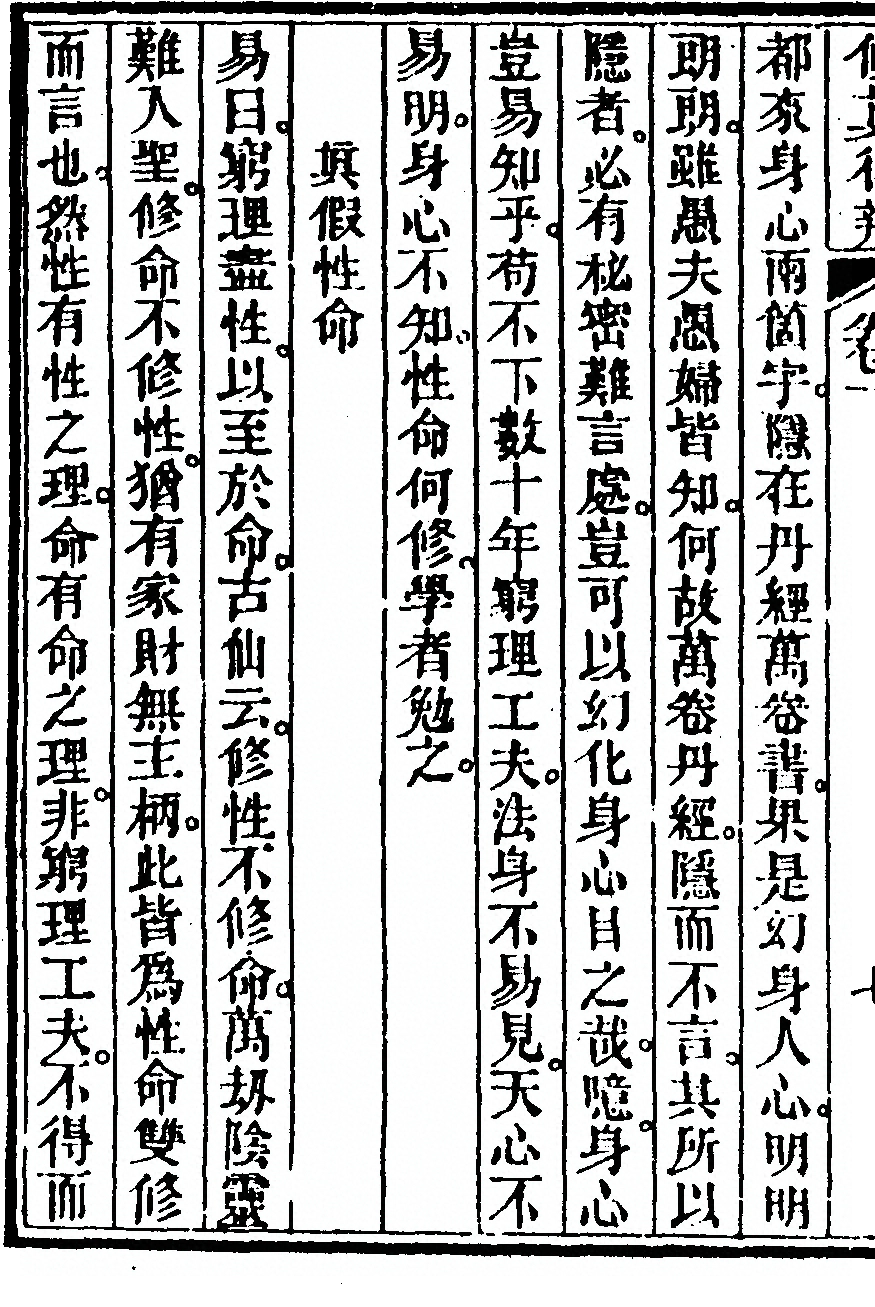 都來身心兩箇字。隱在丹經萬卷書。果是幻身人心。明明
朗朗。雖愚夫愚婦皆知。何故萬卷丹經。隱而不言。其所以
隱者。必有秘密難言處。豈可以幻化身心目之哉。噫。身心
豈易知乎。苟不下數十年窮理工夫。法身不易見。天心不
易明。身心不知。性命何修。學者勉之。
眞假性命
易曰。窮理盡性。以至於命。古仙云。修性不修命。萬劫陰靈
難入聖。修命不修性。猶有家財無主柄。此皆爲性命雙修
而言也。然性有性之理。命有命之理。非窮理工夫。不得而